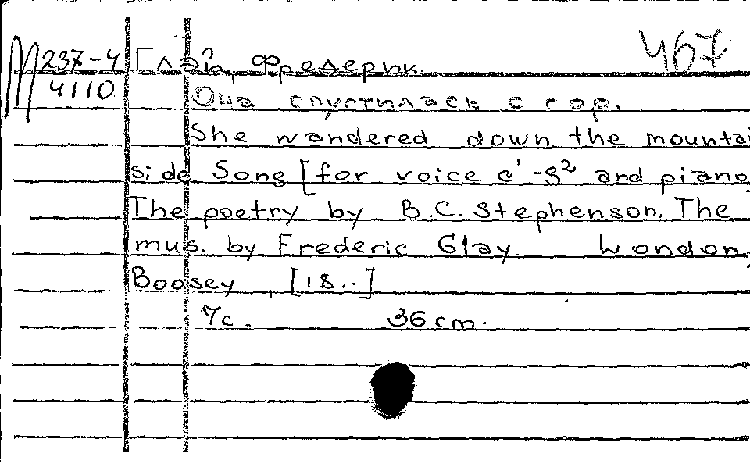 М 237-4 Глэй, Фредерик. 467
4110 Она спустилась с гор.
She wandered down the mountai
side Song [for voice e'-g² and piano
The poetry by B.C. Stephenson. The
mus. by Frederic Glay London,
Boosey, [18..]
7с. 36 cm.